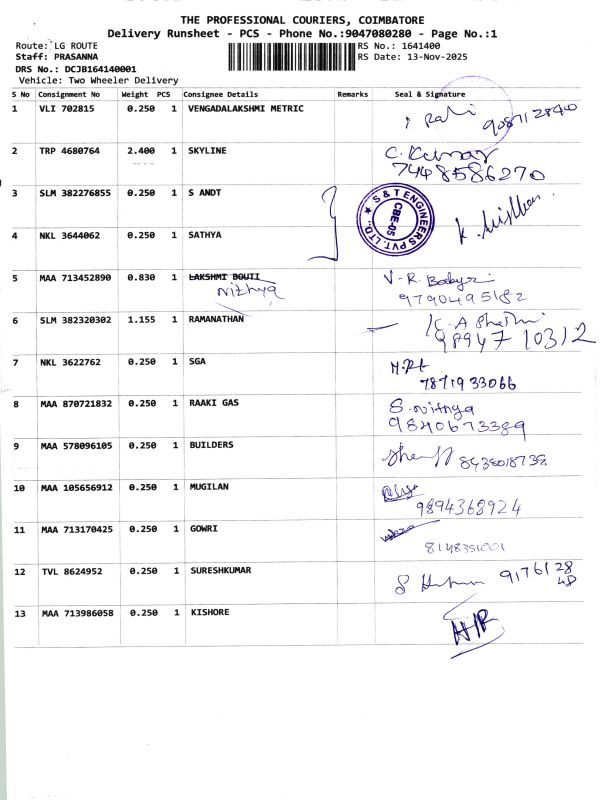 THE PROFESSIONAL COURIERS, COIMBATORE
Delivery Runsheet - PCS - Phone No.:9047080280 - Page No.:1
Route: LG ROUTE RS No.: 1641400
Staff: PRASANNA RS Date: 13-Nov-2025
DRS No.: DCJB164140001
Vehicle: Two Wheeler Delivery
S No Consignment No Weight PCS Consignee Details Remarks Seal & Signature
1 VLI 702815 0.250 1 VENGADALAKSHMI METRIC
2 TRP 4680764 2.400 1 SKYLINE C. Kumar
7448586270
3 SLM 382276855 0.250 1 S ANDT
S & T ENGINEERS PVT. LTD. ★ CBE-05
4 NKL 3644062 0.250 1 SATHYA
5 MAA 713452890 0.830 1 LAKSHMI BOUTI
Nithya
9790495182
6 SLM 382320302 1.155 1 RAMANATHAN
98947 10312
7 NKL 3622762 0.250 1 SGA
7871933066
8 MAA 870721832 0.250 1 RAAKI GAS S. Nithya
9840673389
9 MAA 578096105 0.250 1 BUILDERS 8438018738
10 MAA 105656912 0.250 1 MUGILAN
9894368924
11 MAA 713170425 0.250 1 GOWRI
8148351001
12 TVL 8624952 0.250 1 SURESHKUMAR 9176128
48
13 MAA 713986058 0.250 1 KISHORE